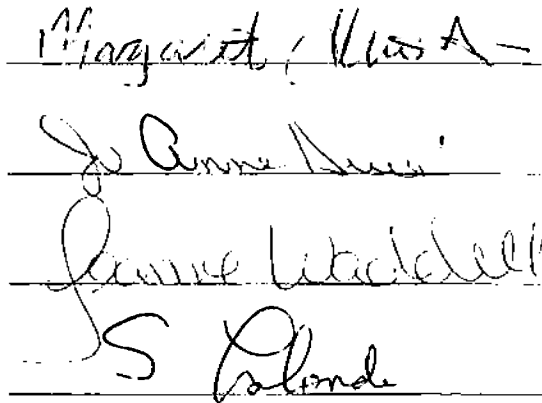 Margaret
Jo Anne
Jeanne Waddell
S Lalonde